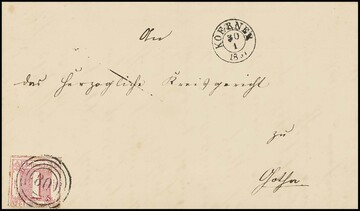 KOERNER
30
1
An
das Herzogliche Kreisgericht
zu
Gotha